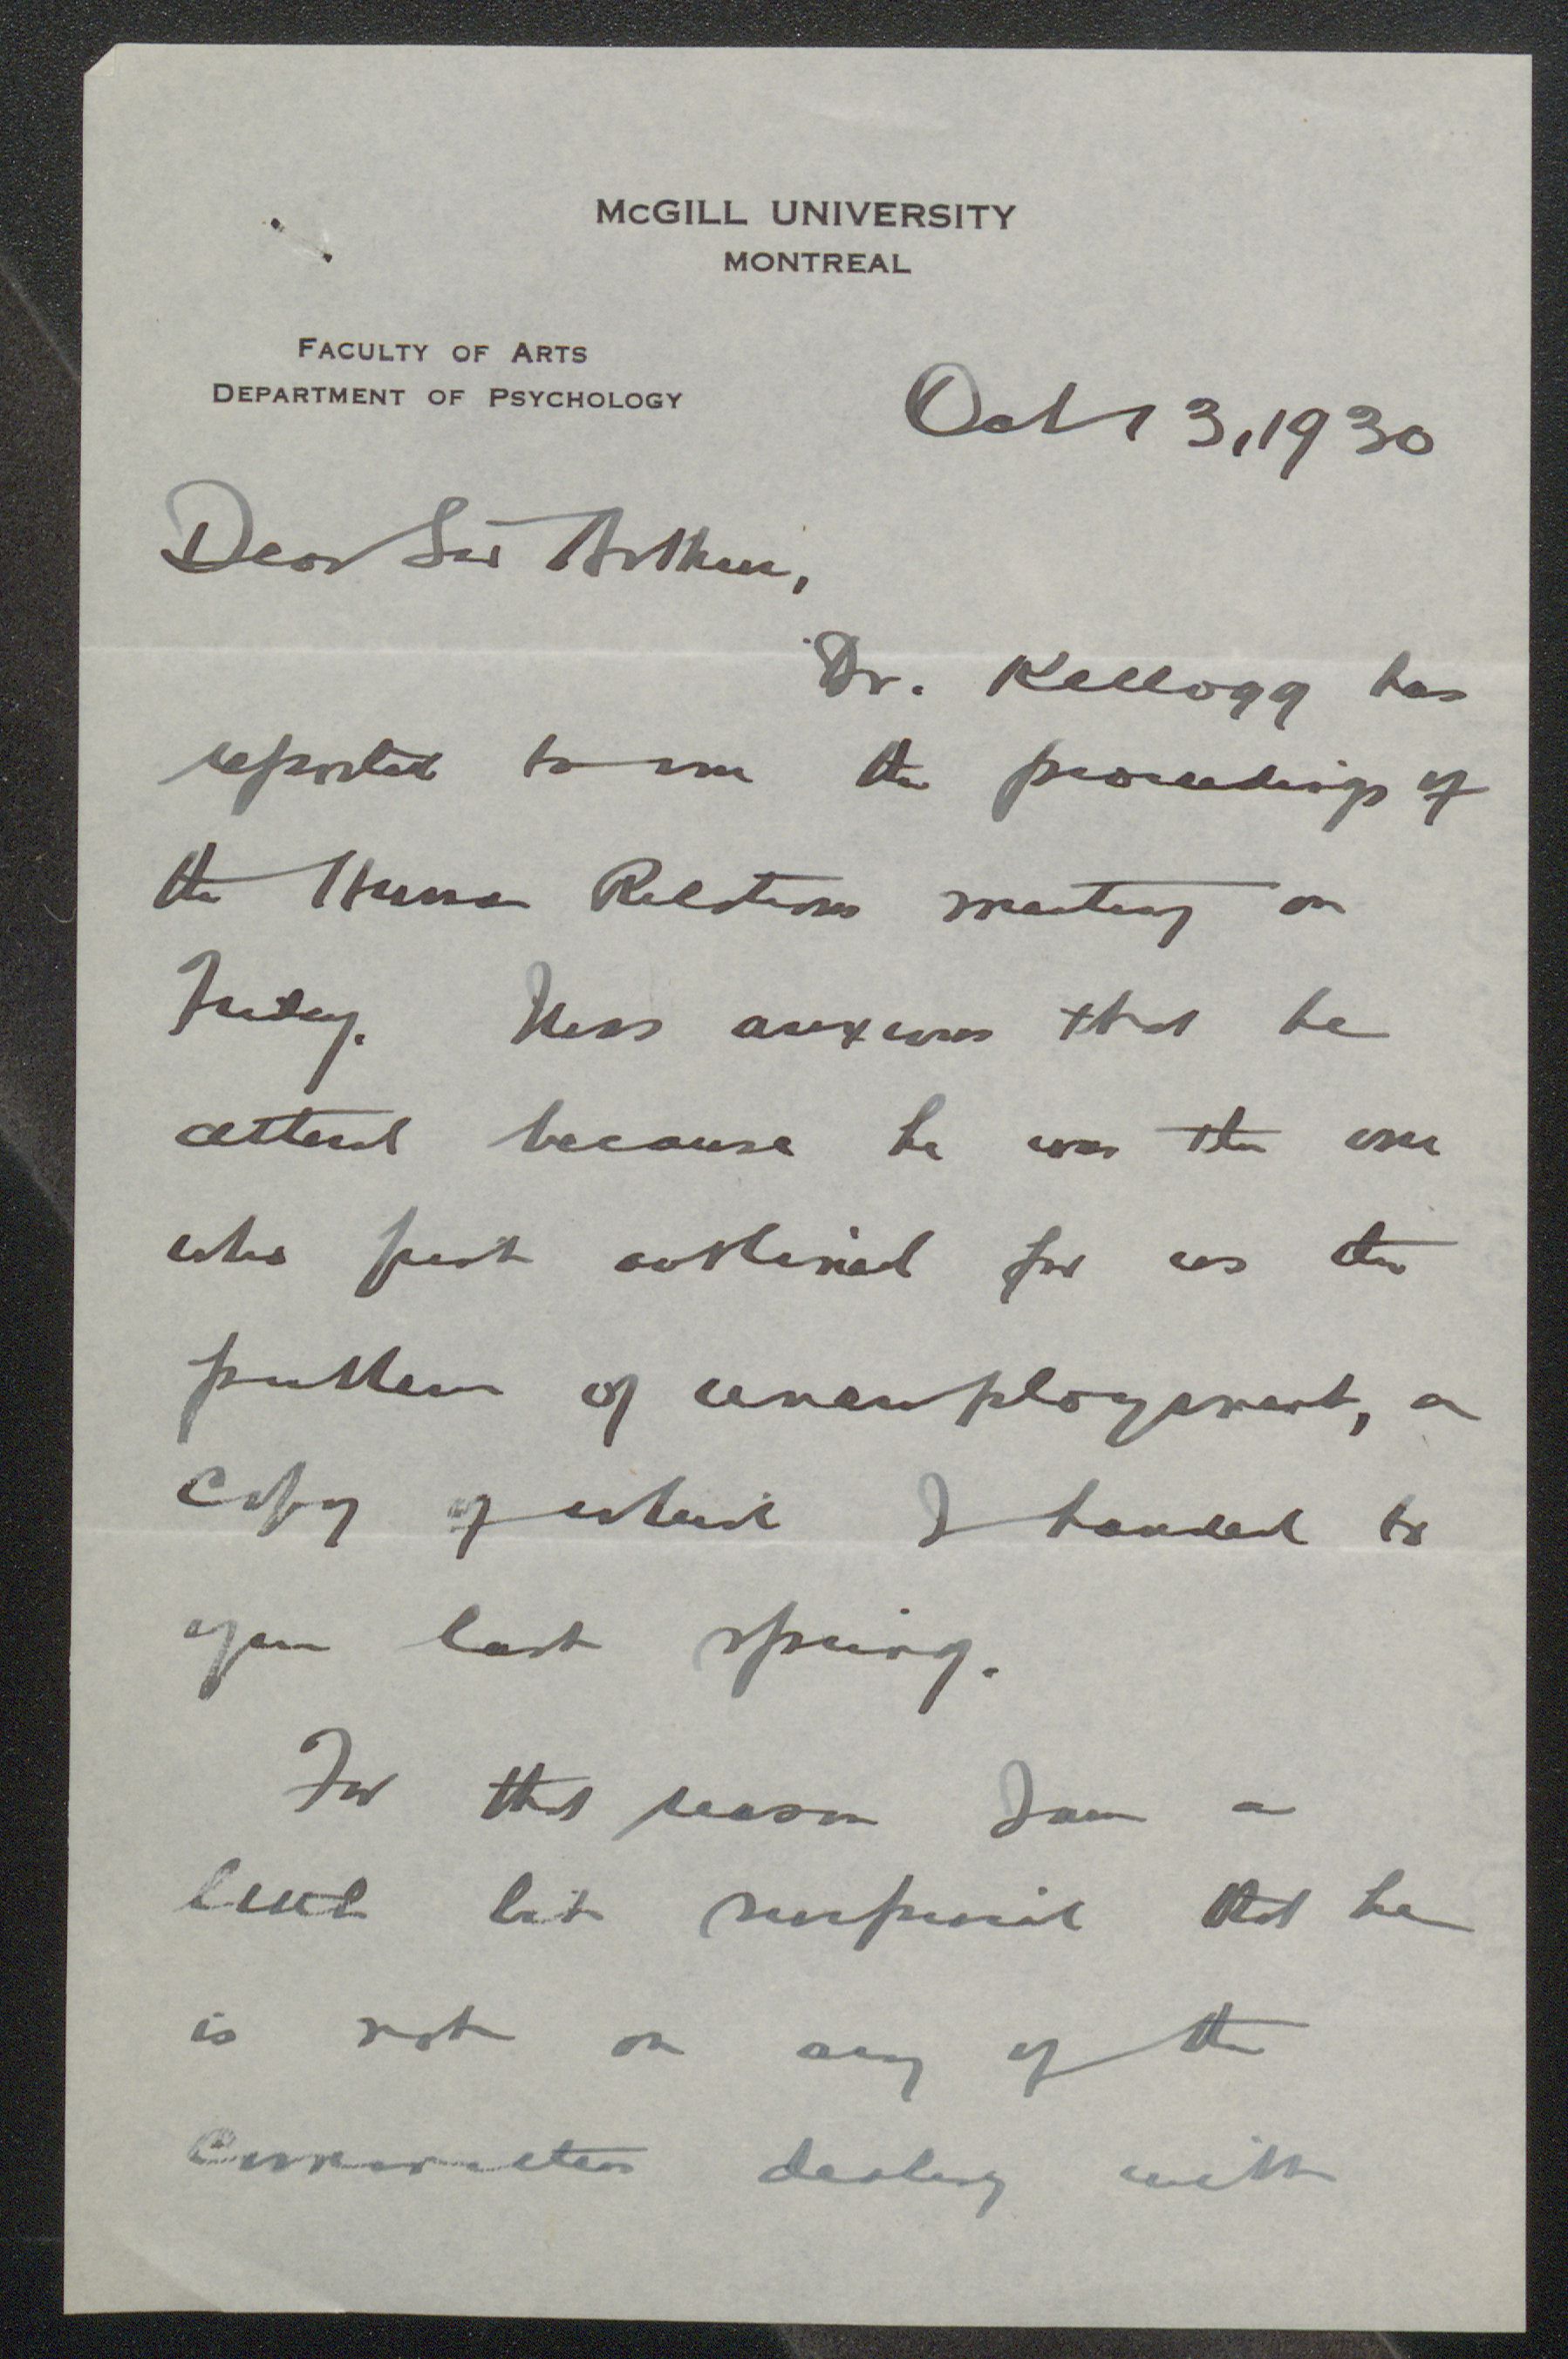 McGILL UNIVERSITY
MONTREAL
FACULTY OF ARTS
DEPARTMENT OF PSYCHOLOGY
Oct 13, 1930
Dear Sir Arthur,
Dr. Kellogg has
reported to me the proceedings of
the Human Relations meeting on
Friday. I was anxious that he
attend because he was the one
who first outlined for us the
problem of unemployment, a
copy of which I handed to
you last spring.
For that reason I am a
little bit surprised that he
is not on any of the
Committees dealing with